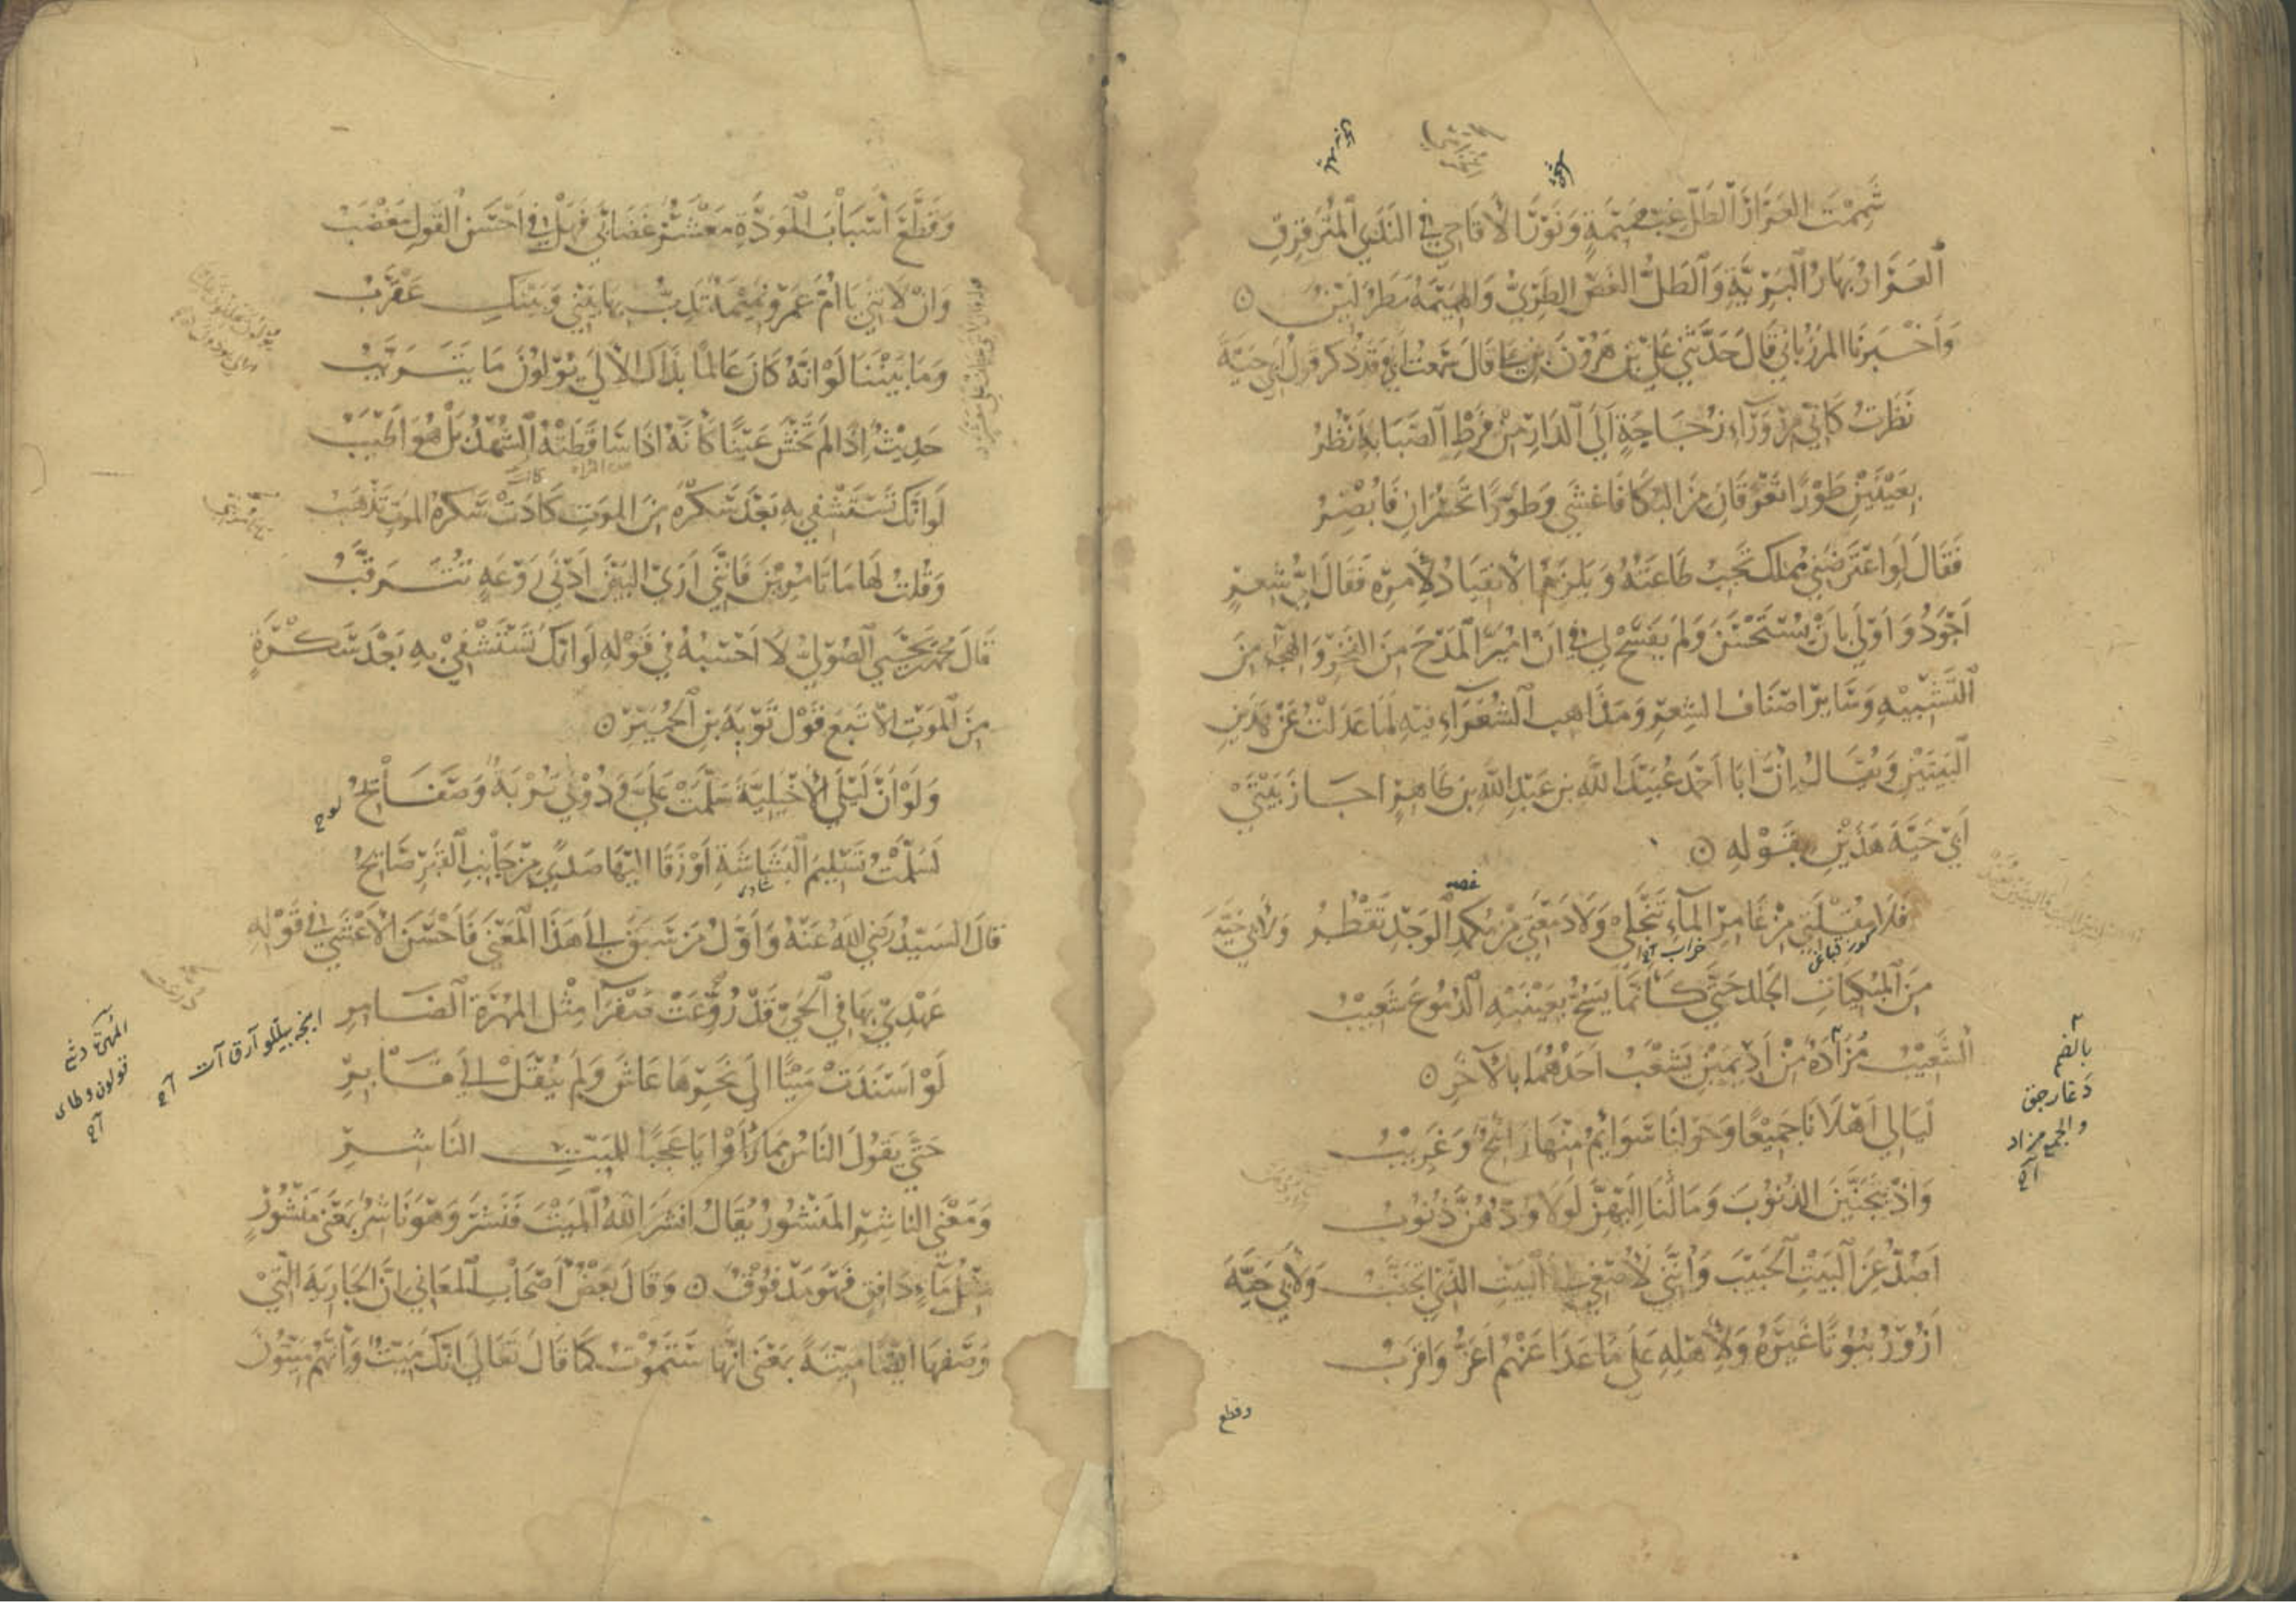 شَمِمْتَ العَرَارَ الطَلَّ غِبَّ هَمِيْمَةٍ وَنَوْرَ الأَقَاحِي فِي النَدَى المُتَرَقْرِقِ
العَرَارُ بَهَارُ البَرِّيَّةِ وَالطَلُّ الغَضُّ الطَرِيُّ وَالهَمِيْمَةُ مَطَرٌ لَيِّنٌ
وَأَخْبَرَنَا المَرْزُبَانِيُّ قَالَ حَدَّثَنِي عَلِيُّ بْنُ هَرُوْنَ بْنِ عَلِيٍّ قَالَ سَمِعْتُ أَبِي وَقَدْ ذُكِرَ قَوْلُ أَبِي حَيَّةَ
نَظَرْتُ كَأَنِّي مِنْ وَرَآءِ زُجَاجَةٍ إِلَى الدَارِ مِنْ فَرْطِ الصَّبَابَةِ أَنْظُرُ
بِعَيْنَيْنِ طَوْرًا تَغْرَقَانِ مِنَ البُكَا فَأَعْشَى وَطَوْرًا تَحْسُرَانِ فَأُبْصِرُ
فَقَالَ لَوِ اعْتَرَضَنِي مَلِكٌ تَجِبُ طَاعَتُهُ وَيَلْزَمُ الانْقِيَادُ لِأَمْرِهِ فَقَالَ أَيُّ شِعْرٍ
أَجْوَدُ وَأَوْلَى بِأَنْ يُسْتَحْسَنَ وَلَمْ يَفْسَحْ لِي فِي أَنْ أُمَيِّزَ المَدْحَ مِنَ الفَخْرِ وَالهِجَاءَ مِنَ
التَشْبِيْهِ وَسَايِرَ أَصْنَافِ الشِعْرِ وَمَذَاهِبِ الشُعَرَاءِ فِيْهِ لَمَا عَدَلْتُ عَنْ هَذَيْنِ
البَيْتَيْنِ وَيُقَالُ إِنَّ أَبَا أَحْمَدَ عُبَيْدَ اللهِ بْنَ عَبْدِ اللهِ بْنِ طَاهِرٍ أَجَازَ بَيْتَيْ
أَبِي حَيَّةَ هَذَيْنِ بِقَوْلِهِ
فَلَا مُقْلَتِي مِنْ غَامِرِ المَآءِ تَنْجَلِي وَلَا دَمْعَتِي مِنْ مُكْمِدِ الوَجْدِ تَقْطُرُ وَلِأَبِي حَيَّةَ
مِنَ المُبْكِيَاتِ الجَلْدَ حَتَّى كَأَنَّمَا يَسُحُّ بِعَيْنَيْهِ الدُمُوعَ شَعِيْبُ
الشَّعِيْبُ مَزَادَةٌ مِنْ أَدِيْمَيْنِ يُشْعَبُ أَحَدُهُمَا بِالآخَرِ
لَيَالِي أَهْلَانَا جَمِيْعًا وَحَوْلَنَا سَوَائِمُ مِنْهَا رَائِحٌ وَغَرِيْبُ
وَإِذْ يَتَجَنَّيْنَ الذُنُوْبَ وَمَالَنَا إِلَيْهِنَّ لَوْلَا وُدُّهُنَّ ذُنُوْبُ
أَصُدُّ عَنِ البَيْتِ الحَبِيْبِ وَإِنَّنِي لَأُصْغِي إِلَى البَيْتِ الَّذِي أَتَجَنَّبُ وَلِأَبِي حَيَّةَ
أَزُوْرُ بُيُوْتًا غَيْرَهُ وَلِأَهْلِهِ عَلَى مَا عَدَا عَنْهُمْ أَعَزُّ وَأَقْرَبُ
وقطع
بالضم
وَقَطَّعَ أَسْبَابَ المَوَدَّةِ مَعْشَرٌ غَضَابَى فَهَلْ فِي أَحْسَنِ القَوْلِ مَغْضَبُ
وَإِنْ لَا تَنِي يَا أُمَّ عَمْرٍو نَمِيْمَةٌ تَدِبُّ بِهَا بَيْنِي وَبَيْنَكِ عَقْرَبُ
وَمَا بَيْنَنَا لَوْ أَنَّهُ كَانَ عَالِمًا بِذَاكَ الأُلَى يُوْلُوْنَ مَا يَتَرَيَّبُ
حَدِيْثٌ إِذَا لَمْ تَخْشَ عَيْنًا كَأَنَّهُ إِذَا سَاقَطَتْهُ الشُّهْدُ بَلْ هُوَ أَطْيَبُ
لَوْ أَنَّكَ تَسْتَشْفِي بِهِ بَعْدَ سَكْرَةٍ مِنَ المَوْتِ كَادَتْ سَكْرَةُ المَوْتِ تَذْهَبُ
وَقُلْتُ لَهَا مَا تَأْمُرِيْنَ فَإِنَّنِي أَرَى البَيْنَ أَدْنَى رَوْعَةٍ تُتَرَقَّبُ
قَالَ مُحَمَّدُ بْنُ يَحْيَى الصُوْلِيُّ لَا أَحْسَبُهُ فِي قَوْلِهِ لَوْ أَنَّكَ تَسْتَشْفِي بِهِ بَعْدَ سَكْرَةٍ
مِنَ المَوْتِ إِلَّا تَبِعَ قَوْلَ تَوْبَةَ بْنِ الحُمَيِّرِ
وَلَوْ أَنَّ لَيْلَى الأَخْيَلِيَّةَ سَلَّمَتْ عَلَيَّ وَدُوْنِي تُرْبَةٌ وَصَفَائِحُ
لَسَلَّمْتُ تَسْلِيْمَ البَشَاشَةِ أَوْ زَقَا إِلَيْهَا صَدًى مِنْ جَانِبِ القَبْرِ صَائِحُ
قَالَ السَيِّدُ رَضِيَ اللهُ عَنْهُ وَأَوَّلُ مَنْ سَبَقَ إِلَى هَذَا المَعْنَى فَأَحْسَنَ الأَعْشَى فِي قَوْلِهِ
عَهْدِي بِهَا فِي الحَيِّ قَدْ رُوِّعَتْ صَفْرَآءَ مِثْلَ المُهْرَةِ الضَامِرِ
لَوْ أَسْنَدَتْ مَيْتًا إِلَى نَحْرِهَا عَاشَ وَلَمْ يُنْقَلْ إِلَى قَابِرِ
حَتَّى يَقُوْلَ النَاسُ مِمَّا رَأَوْا يَا عَجَبًا لِلْمَيِّتِ النَاشِرِ
وَمَعْنَى النَاشِرِ المَنْشُورُ يُقَالُ أَنْشَرَ اللهُ المَيْتَ فَنَشَرَ وَهُوَ نَاشِرٌ بِمَعْنَى مَنْشُوْرٍ
مِثْلُ مَآءٍ دَافِقٍ فَهُوَ مَدْفُوْقٌ وَقَالَ بَعْضُ أَصْحَابِ المَعَانِي إِنَّ الجَارِيَةَ الَّتِي
وَصَفَهَا أَيْضًا مَيِّتَةٌ بِمَعْنَى أَنَّهَا سَتَمُوْتُ كَمَا قَالَ تَعَالَى إِنَّكَ مَيِّتٌ وَإِنَّهُمْ مَيِّتُوْنَ